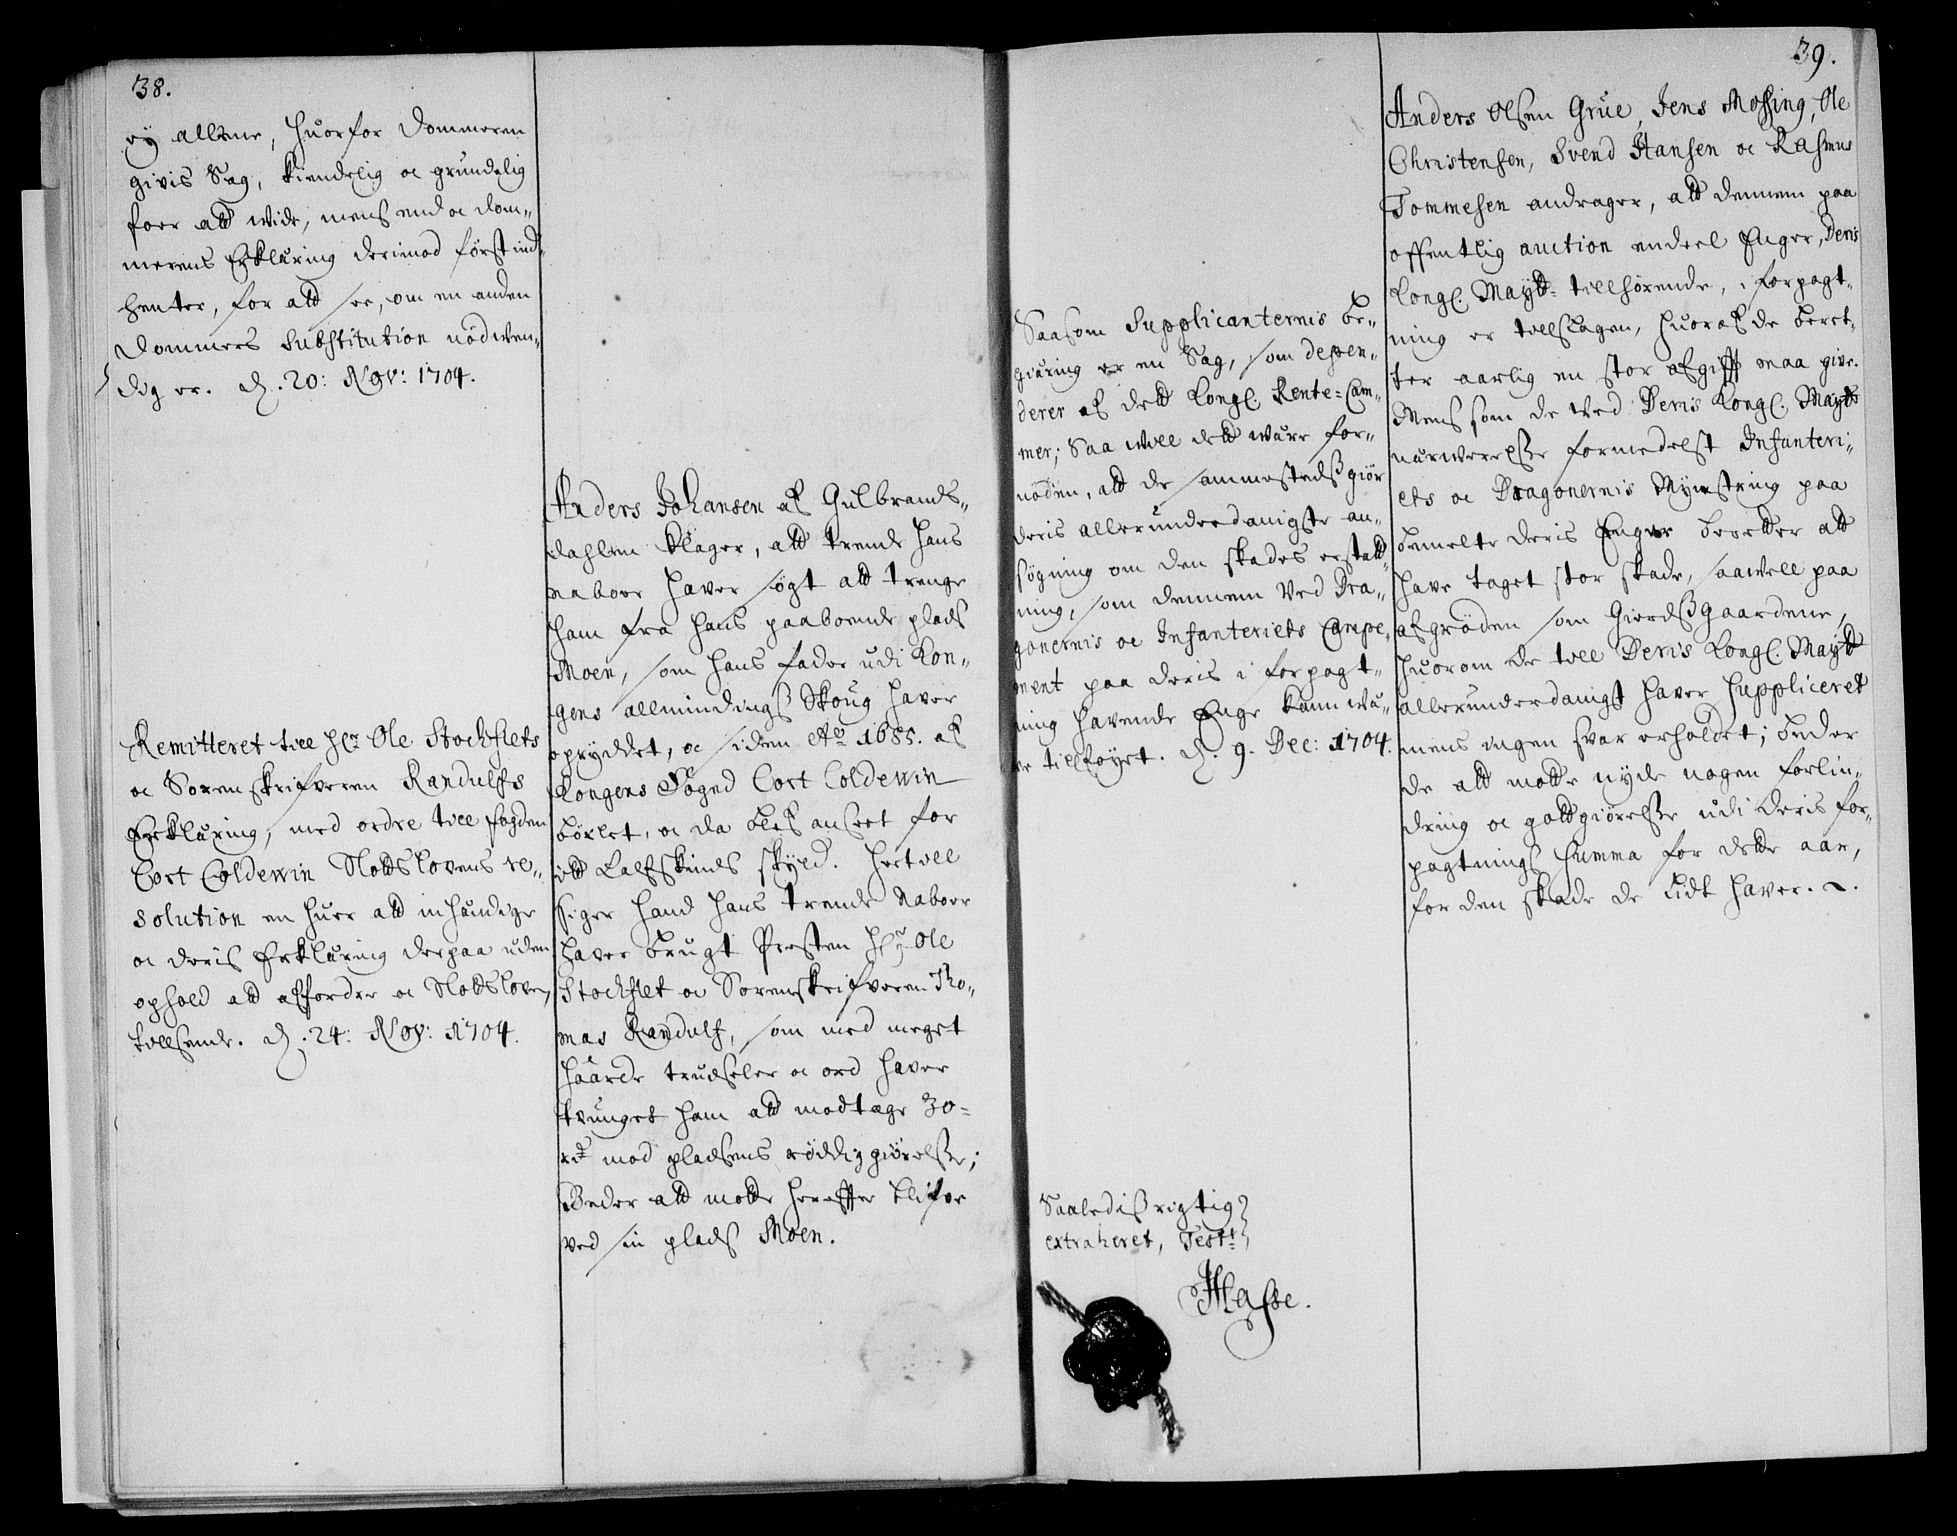 38.
ey allene, huorfor Dommeren
givis Sag, kiendelig oc grundelig
foer att vide, mens end oc dom„
merens Erklæring derimod først ind„
henter, for att see, om en anden
Dommers Substitution nødven„
dig er. d. 20: Nov: 1704.
Remitteret till Hr Ole Stockflets
oc Sorenskrifveren Randulfs
Erklæring, med ordre till fogden
Cort Coldewin Slotslovens re„
solution en huer att inhændige
oc deris Erklæring derpaa uden
ophold att affordre oc Slotsloven
tillsende. d. 24: Nov: 1704.
Anders Johansen af Gulbrands„
dahlen klager, att trende hans
naboer haver søgt att trenge
ham fra hans paaboende plads
Moen, som hans fader udi Kon„
gens allmindings Skoug haver
opryddet, oc siden Ao 1685. af
Kongens Foged Cort Coldewin
bøxlet, oc da blef anseet for
itt Kalfskinds skyld. Hertill
siger hand hans trende Naboer
haver brugt Presten Hr Ole
Stockflet oc Sorenskrifveren Tho„
mas Randulf, som med meget
haarde trudseler oc ord haver
tvunget ham att modtage 30=
rd mod pladsens røddiggiørelse;
Beder att motte hereffter blifve
ved sin plads Moen.
Saasom Supplicanternis be„
giæring er en Sag, som depen„
derer af dett Kongl. Rente=Cam„
mer; Saa vill dett være for„
nøden, att de sammestedsz giør
deris allerunderdanigste an„
søgning om den skades erstatt„
ning, som dennem ved Dra„
gonernis oc Infanteriets Campe„
ment paa deris i forpagt„
ning havende Enge kand væ„
re tilføyet. d. 9. Dec: 1704.
Saaledisz rigtig
extraheret, Test:
HHasse.
39.
Anders Olsen Grue, Jens Mossing, Ole
Christensen, Svend Hansen oc Rasmus
Tommesen andrager, att dennem paa
offentlig auction endeel Enger, Deris
Kongl. Maytt. tillhørende, i forpagt„
ning er tillslagen, huoraf de beret„
ter aarlig en stor afgifft maa give.
Mens som de ved Deris Kongl. Maytts
nærværelse formedelst Infanteri„
ets oc Dragonernis Mynstring paa
bemelte deris Enger beretter att
have taget stor skade, saavell paa
afgrøden som Gierdszgaardene,
huorom de till Deris Kongl. Maytt
allerunderdanigst haver suppliceret
mens ingen svar erholdet; beder
de att motte nyde nogen forlin„
dring oc gottgiørelse udi deris for„
pagtnings Summa for dette aar,
for den skade de lidt haver.